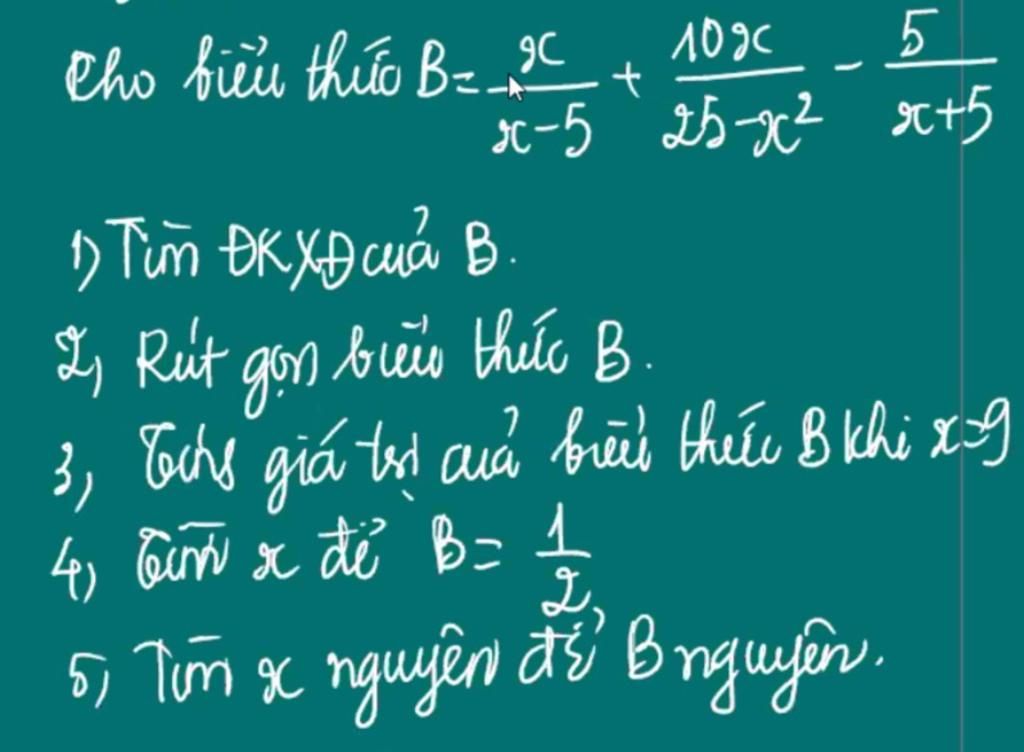 Cho biểu thức B = x/(x-5) + 10x/(25-x²) - 5/(x+5)
1) Tìm ĐKXĐ của B.
2, Rút gọn biểu thức B.
3, Tính giá trị của biểu thức B khi x=9
4, Tìm x để B = 1/2,
5, Tìm x nguyên để B nguyên.